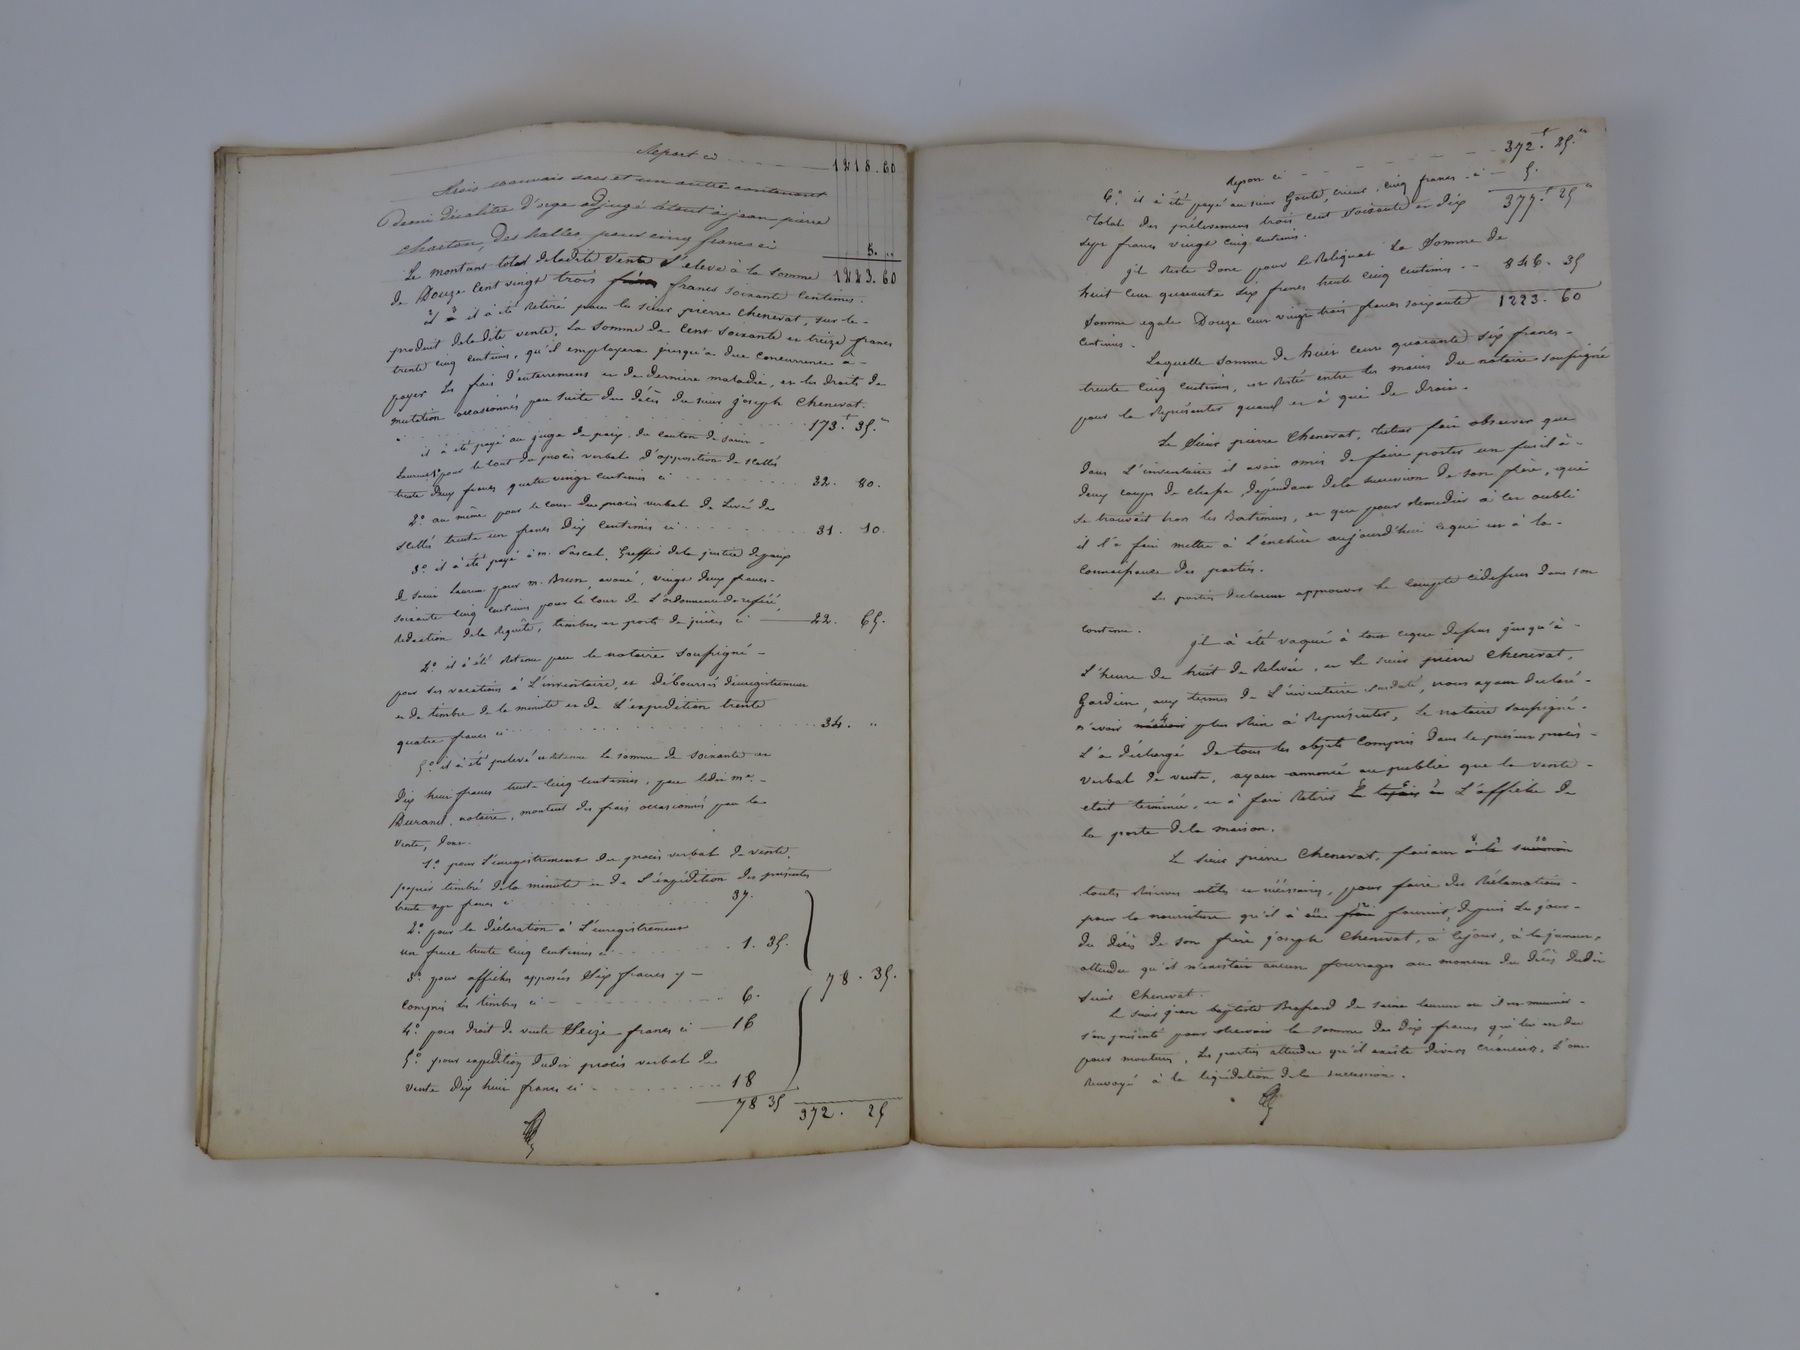 Report ci 1218. 60
trois mauvais sacs et un autre contenant
Demi décalitre d'orge adjugé le tout à jean pierre
charton, des halles, pour cinq francs ci 5. "
Le montant total de ladite vente s'eleve à la somme 1223. 60
de Douze cent vingt trois francs soixante centimes.
il à été retiré par le sieur pierre Chenevat, sur le
produit de ladite vente, la somme de cent soixante et treize francs
trente cinq centimes, qu'il employera jusqu'à due concurrence à
payer les frais d'enterrement et de derniere maladie, et les droits de
mutation occasionnés par suite du décès du sieur joseph Chenevat.
173.f 35.c
il à été payé au juge de paix du canton de saint
laurent, pour le cout du procès verbal d'apposition de scellés
trente deux francs quatre vingt centimes ci 32. 80.
2.o au même pour le cout du procès verbal de levé des
scellés trente un francs dix centimes ci 31. 10.
3.o il à été payé à m. Pascal, Greffier de la justice de paix
de saint laurent pour m. Brun, avoué, vingt deux francs
soixante cinq centimes pour le cout de l'ordonnance de référé,
redaction de la requête, timbres et ports de pièces ci 22. 65.
4.o il à été retenu par le notaire soussigné
pour ses vacations à L'inventaire, et déboursés d'enregistrement
et de timbre de la minute et de L'expédition trente
quatre francs ci 34. "
5.o il à été prelevé et retenu la somme de soixante et
dix huit francs trente cinq centimes, par ledit me.
Durand, notaire, montant des frais occasionnés par la
vente, dont.
1.o pour L'enregistrement du procès verbal de vente,
papier timbré de la minute et de L'expédition des présentes
trente sept francs ci 37.
2.o pour la déclaration à L'enregistrement
un franc trente cinq centimes ci 1. 35.
3.o pour affiches apposées six francs y
compris les timbres ci 6. 78. 35.
4.o pour droit de vente Seize francs ci 16
5.o pour expedition dudit procès verbal de
vente dix huit francs ci 18
78 35 372. 25
Report ci 372.f 25.c
6.o il à été payé au sieur Gouté, crieur, cinq francs ci 5.
Total des prélevemens trois cent soixante et dix 377.f 25c
sept francs vingt cinq centimes.
jl reste donc pour le Reliquat la somme de
huit cent quarante six francs trente cinq centimes 846. 35
Somme egale Douze cent vingt trois francs soixante 1223. 60
centimes.
Laquelle somme de huit cent quarante six francs
trente cinq centimes, est restée entre les mains du notaire soussigné
pour la représenter quand et à qui de droit.
Le sieur pierre Chenevat, tuteur fait observer que
dans L'inventaire il avoit omis de faire porter un fusil à
deux coups de chasse, dépendant de la succession de son frère, qui
se trouvait hors les Batimens, et que pour remedier à cet oubli
il l'a fait mettre à L'enchère aujourd'hui ce qui est à la
connaissance des parties.
Les parties declarent approuver le compte cidessus dans son
contenu.
jl à été vaqué à tout ceque dessus jusqu'à
L'heure de huit de relevée, et le sieur pierre Chenevat,
Gardien, aux termes de L'inventaire susdaté, nous ayant declaré
n'avoir plus Rien à Représenter, le notaire soussigné
L'a déchargé de tous les objets compris dans le présent procès
verbal de vente, ayant annoncé au public que la vente
etait terminée, et à fait retirer L'affiche de
la porte de la maison.
Le sieur pierre Chenevat, faisant à la succession
toutes Réserves utiles et nécessaires, pour faire des Réclamations
pour la nourriture qu'il à fournit, depuis le jour
du décès de son frère joseph Chenevat, à cejour, à la jument,
attendu qu'il n'existait aucun fourrages au moment du décès dudit
sieur Chenevat.
Le sieur jean baptiste Brossard de saint laurent où il est meunier
s'est présenté pour recevoir la somme de dix francs qui lui est due
pour mouture, les parties attendu qu'il existe divers créanciers, l'ont
renvoyé à la liquidation de la succession.